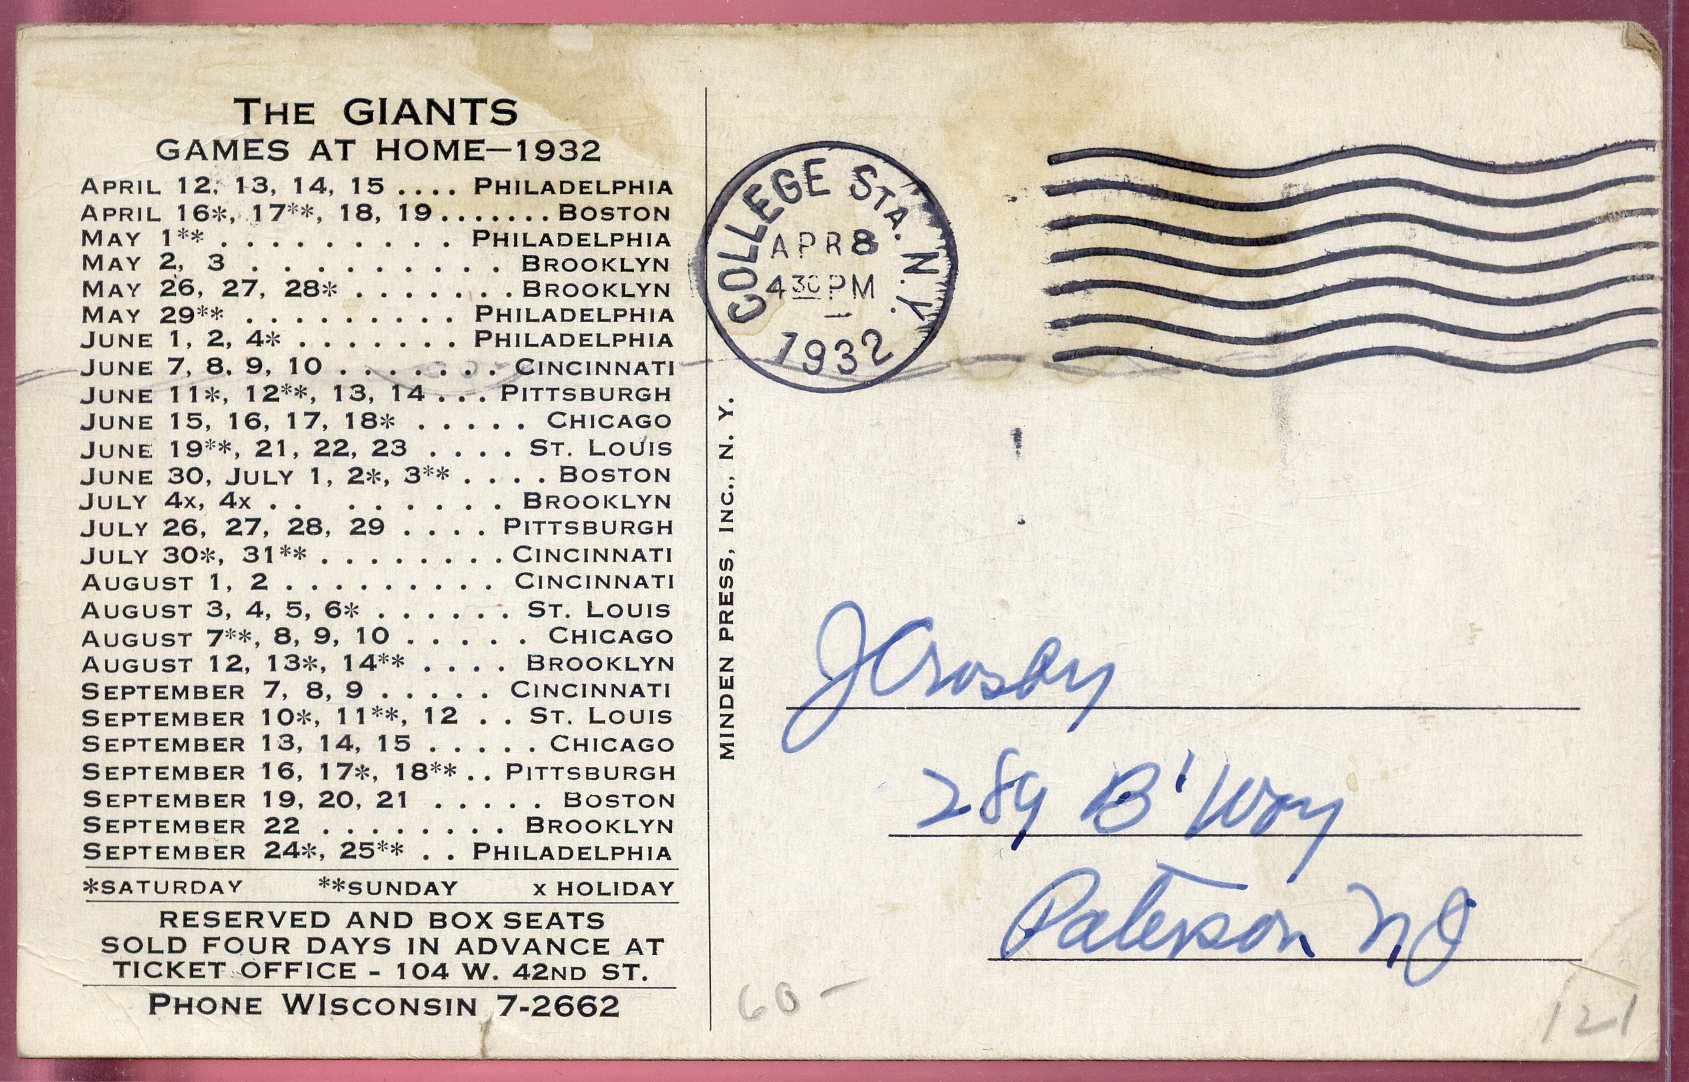 THE GIANTS
GAMES AT HOME—1932
APRIL 12, 13, 14, 15 .... PHILADELPHIA
APRIL 16*, 17**, 18, 19 ....... BOSTON
MAY 1** ......... PHILADELPHIA
MAY 2, 3 .......... BROOKLYN
MAY 26, 27, 28* ....... BROOKLYN
MAY 29** ......... PHILADELPHIA
JUNE 1, 2, 4* ....... PHILADELPHIA
JUNE 7, 8, 9, 10 ....... CINCINNATI
JUNE 11*, 12**, 13, 14 ... PITTSBURGH
JUNE 15, 16, 17, 18* ..... CHICAGO
JUNE 19**, 21, 22, 23 .... ST. LOUIS
JUNE 30, JULY 1, 2*, 3** .... BOSTON
JULY 4x, 4x .. ....... BROOKLYN
JULY 26, 27, 28, 29 .... PITTSBURGH
JULY 30*, 31** ........ CINCINNATI
AUGUST 1, 2 ......... CINCINNATI
AUGUST 3, 4, 5, 6* ...... ST. LOUIS
AUGUST 7**, 8, 9, 10 ..... CHICAGO
AUGUST 12, 13*, 14** .... BROOKLYN
SEPTEMBER 7, 8, 9 ..... CINCINNATI
SEPTEMBER 10*, 11**, 12 .. ST. LOUIS
SEPTEMBER 13, 14, 15 ..... CHICAGO
SEPTEMBER 16, 17*, 18** .. PITTSBURGH
SEPTEMBER 19, 20, 21 ..... BOSTON
SEPTEMBER 22 ........ BROOKLYN
SEPTEMBER 24*, 25** .. PHILADELPHIA
*SATURDAY **SUNDAY x HOLIDAY
RESERVED AND BOX SEATS
SOLD FOUR DAYS IN ADVANCE AT
TICKET OFFICE - 104 W. 42ND ST.
PHONE WISCONSIN 7-2662
MINDEN PRESS, INC., N. Y.
COLLEGE STA. N.Y.
APR 8
4 30 PM
1932
J Crosby
289 B'Way
Paterson NJ
60 -
121